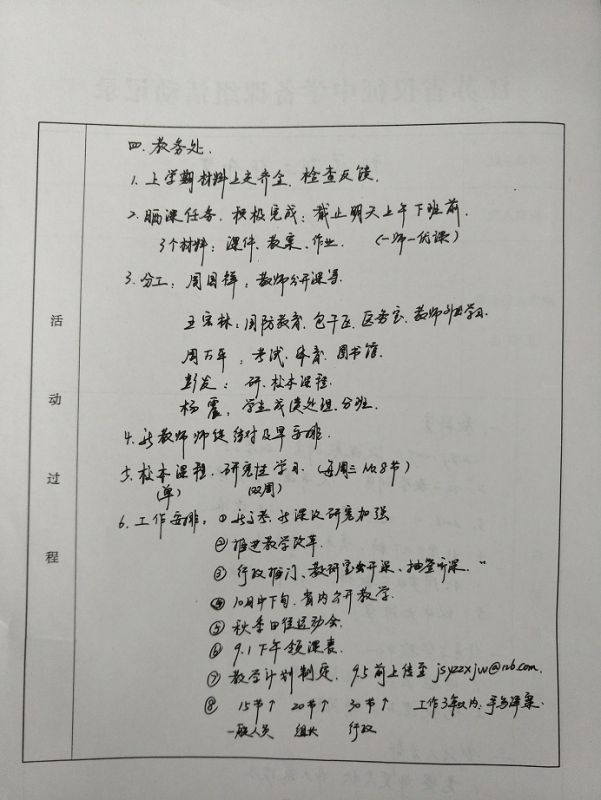 四. 教务处.
1. 上学期材料上交齐全. 检查反馈.
2. 晒课任务. 积极完成: 截止明天上午下班前.
3个材料: 课件. 教案. 作业. (一师一优课)
活动过程
3. 分工: 周国祥: 教师公开课等.
王宏林: 国防教育. 包干区. 医务室. 教师外出学习.
周万年: 考试. 体育. 图书馆.
彭友: 研. 校本课程.
杨震: 学生成绩处理. 分班.
4. 新教师师徒结对及早安排.
5. 校本课程. 研究性学习. (每周三 7.8节)
(单) (双周)
6. 工作安排. ① 新高考. 新课改研究加强
② 推进教学改革.
③ 行政推门、教研室公开课、抽查听课.
④ 10月中下旬. 省内公开教学.
⑤ 秋季田径运动会.
⑥ 9.1下午领课表.
⑦ 教学计划制定. 9.5前上传至 jsyzzxjw@126.com.
⑧ 15节↑ 20节↑ 30节↑ 工作3年以内: 手写详案.
一般人员 组长 行政